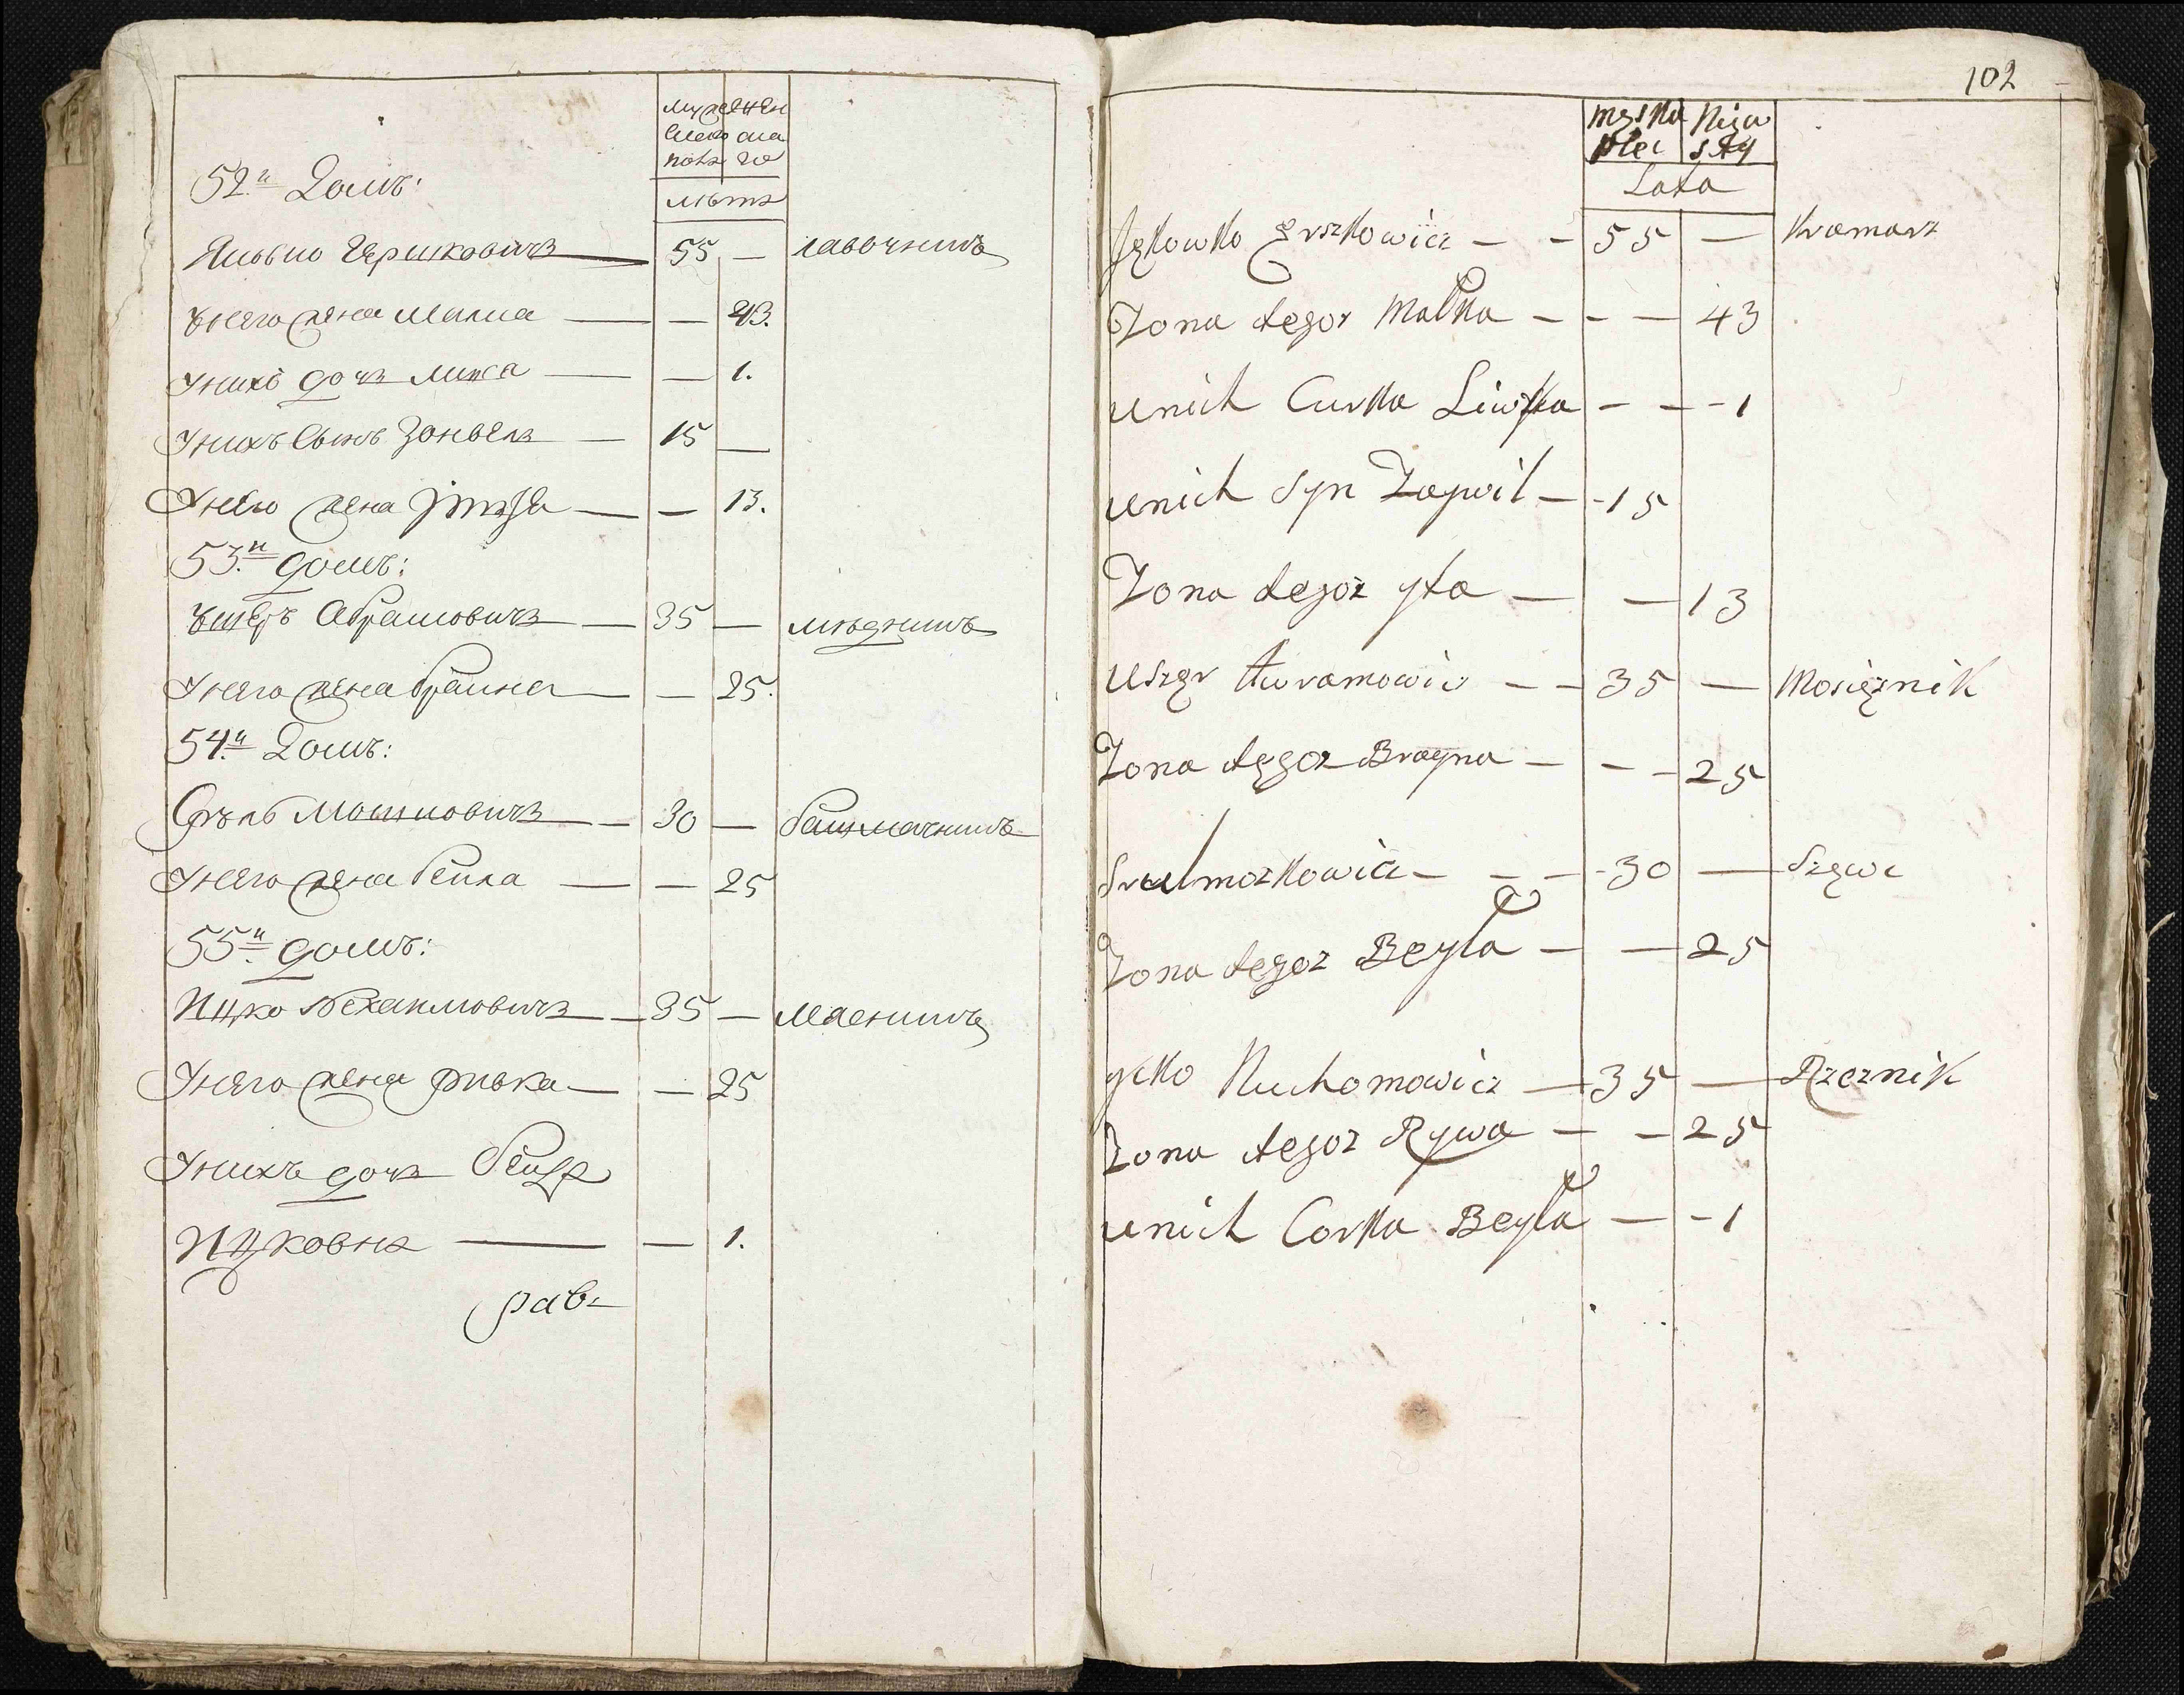 муже женс
ска ска
пола го
лѣта
52й Домъ:
Яковко Гершковичъ — 55 — лавочникъ
У него жена Малка — — 43.
У нихъ дочь Ливка — — 1.
У нихъ Сынъ Зонвель — 15 —
У него жена — — 13.
53.й домъ:
Ушеръ Абрамовичъ — 35 — мѣдникъ
У него жена брайна — — 25.
54.й Домъ:
Сруль Мошковичъ — 30 — башмачникъ
У него жена бейла — — 25
55.й домъ:
Ицко Нехаимовичъ — 35 — Масникъ
У него жена ривка — — 25
У нихъ дочь бейла
Ицковна — — 1.
рав-
102
męska Niewi
płci sty
Lata
Jękowko Erszkowicz — — 55 — Kramarz
Zona tegoz Malka — — — 43
unich Curka Liwka — — - 1
unich Syn Zaywil — - 15
Zona tegoz yta — — 13
Uszer Awramowic — — 35 — Mosiężnik
Zona tegoz Brayna — — — 25
Srul moszkowicz — — — 30 — Szewc
Zona tegoz Beyla — — 25
ycko Nuchomowicz — 35 — Rzeznik
Zona tegoz Rywa — — 25
unich Corka Beyla — — 1